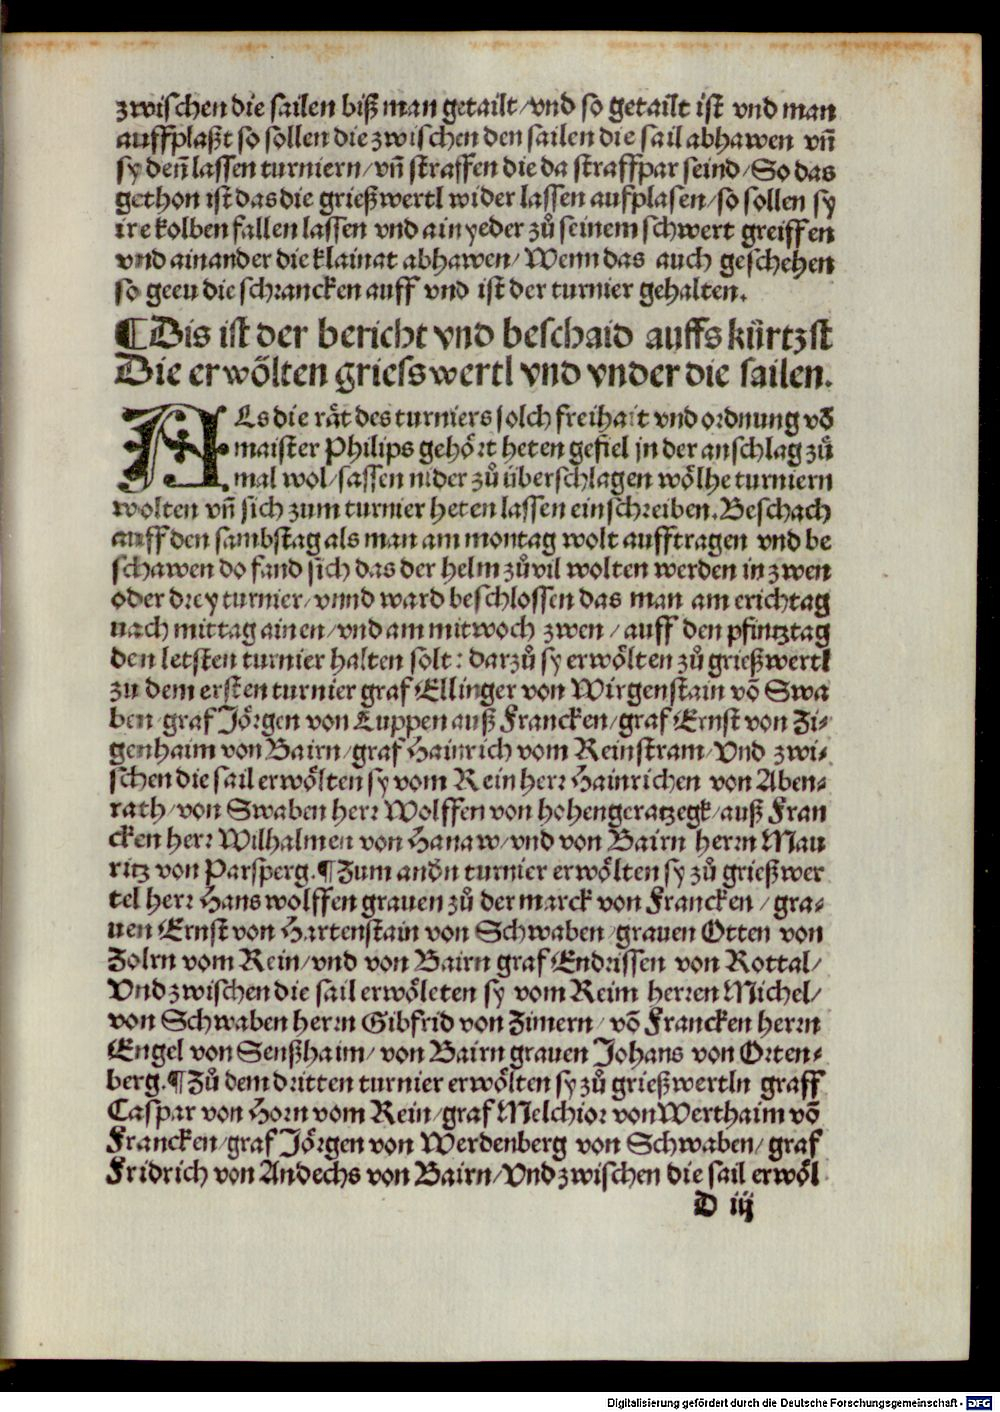 zwischen die sailen biß man getailt/vnd so getailt ist vnd man
auffplaßt so sollen die zwischen den sailen die sail abhawen vn̄
sy den̄ lassen turniern/vn̄ straffen die da straffpar seind/So das
gethon ist das die grießwertl wider lassen aufplasen/so sollen sy
ire kolben fallen lassen vnd ain yeder zů seinem schwert greiffen
vnd ainander die klainat abhawen/Wenn das auch geschehen
so geeu die schrancken auff vnd ist der turnier gehalten.
¶Dis ist der bericht vnd beschaid auffs kürtzst
Die erwölten griesswertl vnd vnder die sailen.
ALs die rät des turniers solch freihait vnd ordnung vō
maister Philips gehört heten gefiel jn der anschlag zů
mal wol/sassen nider zů überschlagen wölhe turniern
wolten vn̄ sich zum turnier heten lassen einschreiben.Beschach
auff den sambstag als man am montag wolt aufftragen vnd be
schawen do fand sich das der helm zůvil wolten werden in zwen
oder drey turnier/vnnd ward beschlossen das man am erichtag
nach mittag ainen/vnd am mitwoch zwen/auff den pfintztag
den letsten turnier halten solt: darzů sy erwölten zů grießwertl
zu dem ersten turnier graf Ellinger von Wirgenstain vō Swa
ben/graf Jörgen von Luppen auß Francken/graf Ernst von Zi-
genhaim von Bairn/graf Hainrich vom Reinstram/Vnd zwi-
schen die sail erwölten sy vom Rein herr Hainrichen von Aben-
rath/von Swaben herr Wolffen von hohengeratzegk/auß Fran
cken herr Wilhalmen von Hanaw/vnd von Bairn herrn Mau
ritz von Parsperg.¶Zum andn̄ turnier erwölten sy zů grießwer
tel herr Hans wolffen grauen zů der marck von Francken/gra-
uen Ernst von Hartenstain von Schwaben/grauen Otten von
Zolrn vom Rein/vnd von Bairn graf Endrissen von Rottal/
Vnd zwischen die sail erwöleten sy vom Reim herren Michel/
von Schwaben herrn Gibfrid von Zimern/vō Francken herrn
Engel von Senßhaim/von Bairn grauen Johans von Orten-
berg.¶Zů dem dritten turnier erwölten sy zů grießwertln graff
Caspar von Horn vom Rein/graf Melchior von Werthaim vō
Francken/graf Jörgen von Werdenberg von Schwaben/graf
Fridrich von Andechs von Bairn/Vnd zwischen die sail erwöl
D iij
Digitalisierung gefördert durch die Deutsche Forschungsgemeinschaft - DFG